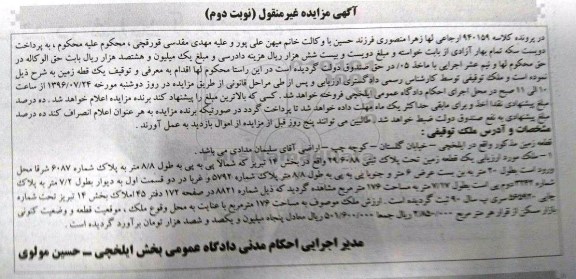 آگهی مزایده غیرمنقول (نوبت دوم)
در پرونده کلاسه ۹۴۰۱۵۹ ارجاعی لها زهرا منصوری فرزند حسین با وکالت خانم میهن علی پور و علیه مهدی مقدسی قورقچی، محکوم علیه محکوم به پرداخت
دویست سکه تمام بهار آزادی از بابت خواسته و مبلغ دویست و بیست شش هزار ریال هزینه دادرسی و مبلغ یک میلیون و هشتصد هزار ریال بابت حق الوکاله در
حق محکوم لها و نیم عشر اجرایی با ماخذ ۰/۵ در حق صندوق دولت گردیده است در این راستا محکوم لها اقدام به معرفی و توقیف یک قطعه زمین به شرح ذیل
نموده است و ملک توقیفی توسط کارشناس رسمی دادگستری ارزیابی و پس از طی مراحل قانونی از طریق مزایده در روز دوشنبه مورخه ۱۳۹۶/۰۷/۲۴ از ساعت
۱۰ الی ۱۱ صبح در محل اجرای احکام دادگاه عمومی ایلخچی فروخته خواهد شد. کسی که بالاترین مبلغ را پیشنهاد کند برنده مزایده اعلام خواهد شد. ده درصد
مبلغ پیشنهادی نقدا اخذ و برای مابقی حداکثر یک ماه مهلت داده خواهد شد تا پرداخت گردد در صورتیکه برنده مزایده به هر عنوان اعلام انصراف کند ده درصد
مبلغ پیشنهادی به نفع صندوق دولت ضبط خواهد شد. طالبین می توانند پنج روز قبل از مزایده از اموال بازدید به عمل آورند.
مشخصات و آدرس ملک توقیفی:
زمین مذکور واقع در ایلخچی – خیابان گلستان – کوچه چپ – اراضی آقای سلیمان مدادی می باشد.
۱ – ملک مورد ارزیابی یک قطعه زمین تحت پلاک ثبتی ۴۹.۶۰۸۸ واقع در بخش ۱۴ تبریز که شمالا پی به پی به طول ۸/۸ متر به پلاک شماره ۶۰۸۷ شرقا محل
ورود است بطول ۲۰ متر به بن بست عرضی ۶ متر و جنوبا پی به پی به طول ۸/۸ متر پلاک شماره ۵۷۹۲ و غربا در دو قسمت اول به دیوار بطول ۷/۲ متر به پلاک
شماره ۳۴۳۲ دوم پی است بطول ۱۲/۷ متر به مساحت ۱۷۶ متر مربع مشاهده گردید که ذیل شماره ۸۸۲۱ در صفحه ۱۷۲ دفتر ۴۵ املاک بخش ۱۴ تبریز تحت شماره
چاپی ۵۶۵۴۳۰ سری پ سال ۹۰ ثبت گردیده است. ارزش ملک موصوف به مساحت ۱۷۶ مترمربع با عنایت به محل وقوع ملک، موقعیت قطعه و وضعیت کنونی
بازار مسکن از قرار هر متر مربع ۲/۸۵۰/۰۰۰ ریال جمعا ۵۰۱/۶۰۰/۰۰۰ ریال معادل پنجاه میلیون و یکصد و شصت هزار تومان برآورد گردیده است.
مدیر اجرایی احکام مدنی دادگاه عمومی بخش ایلخچی – حسین مولوی